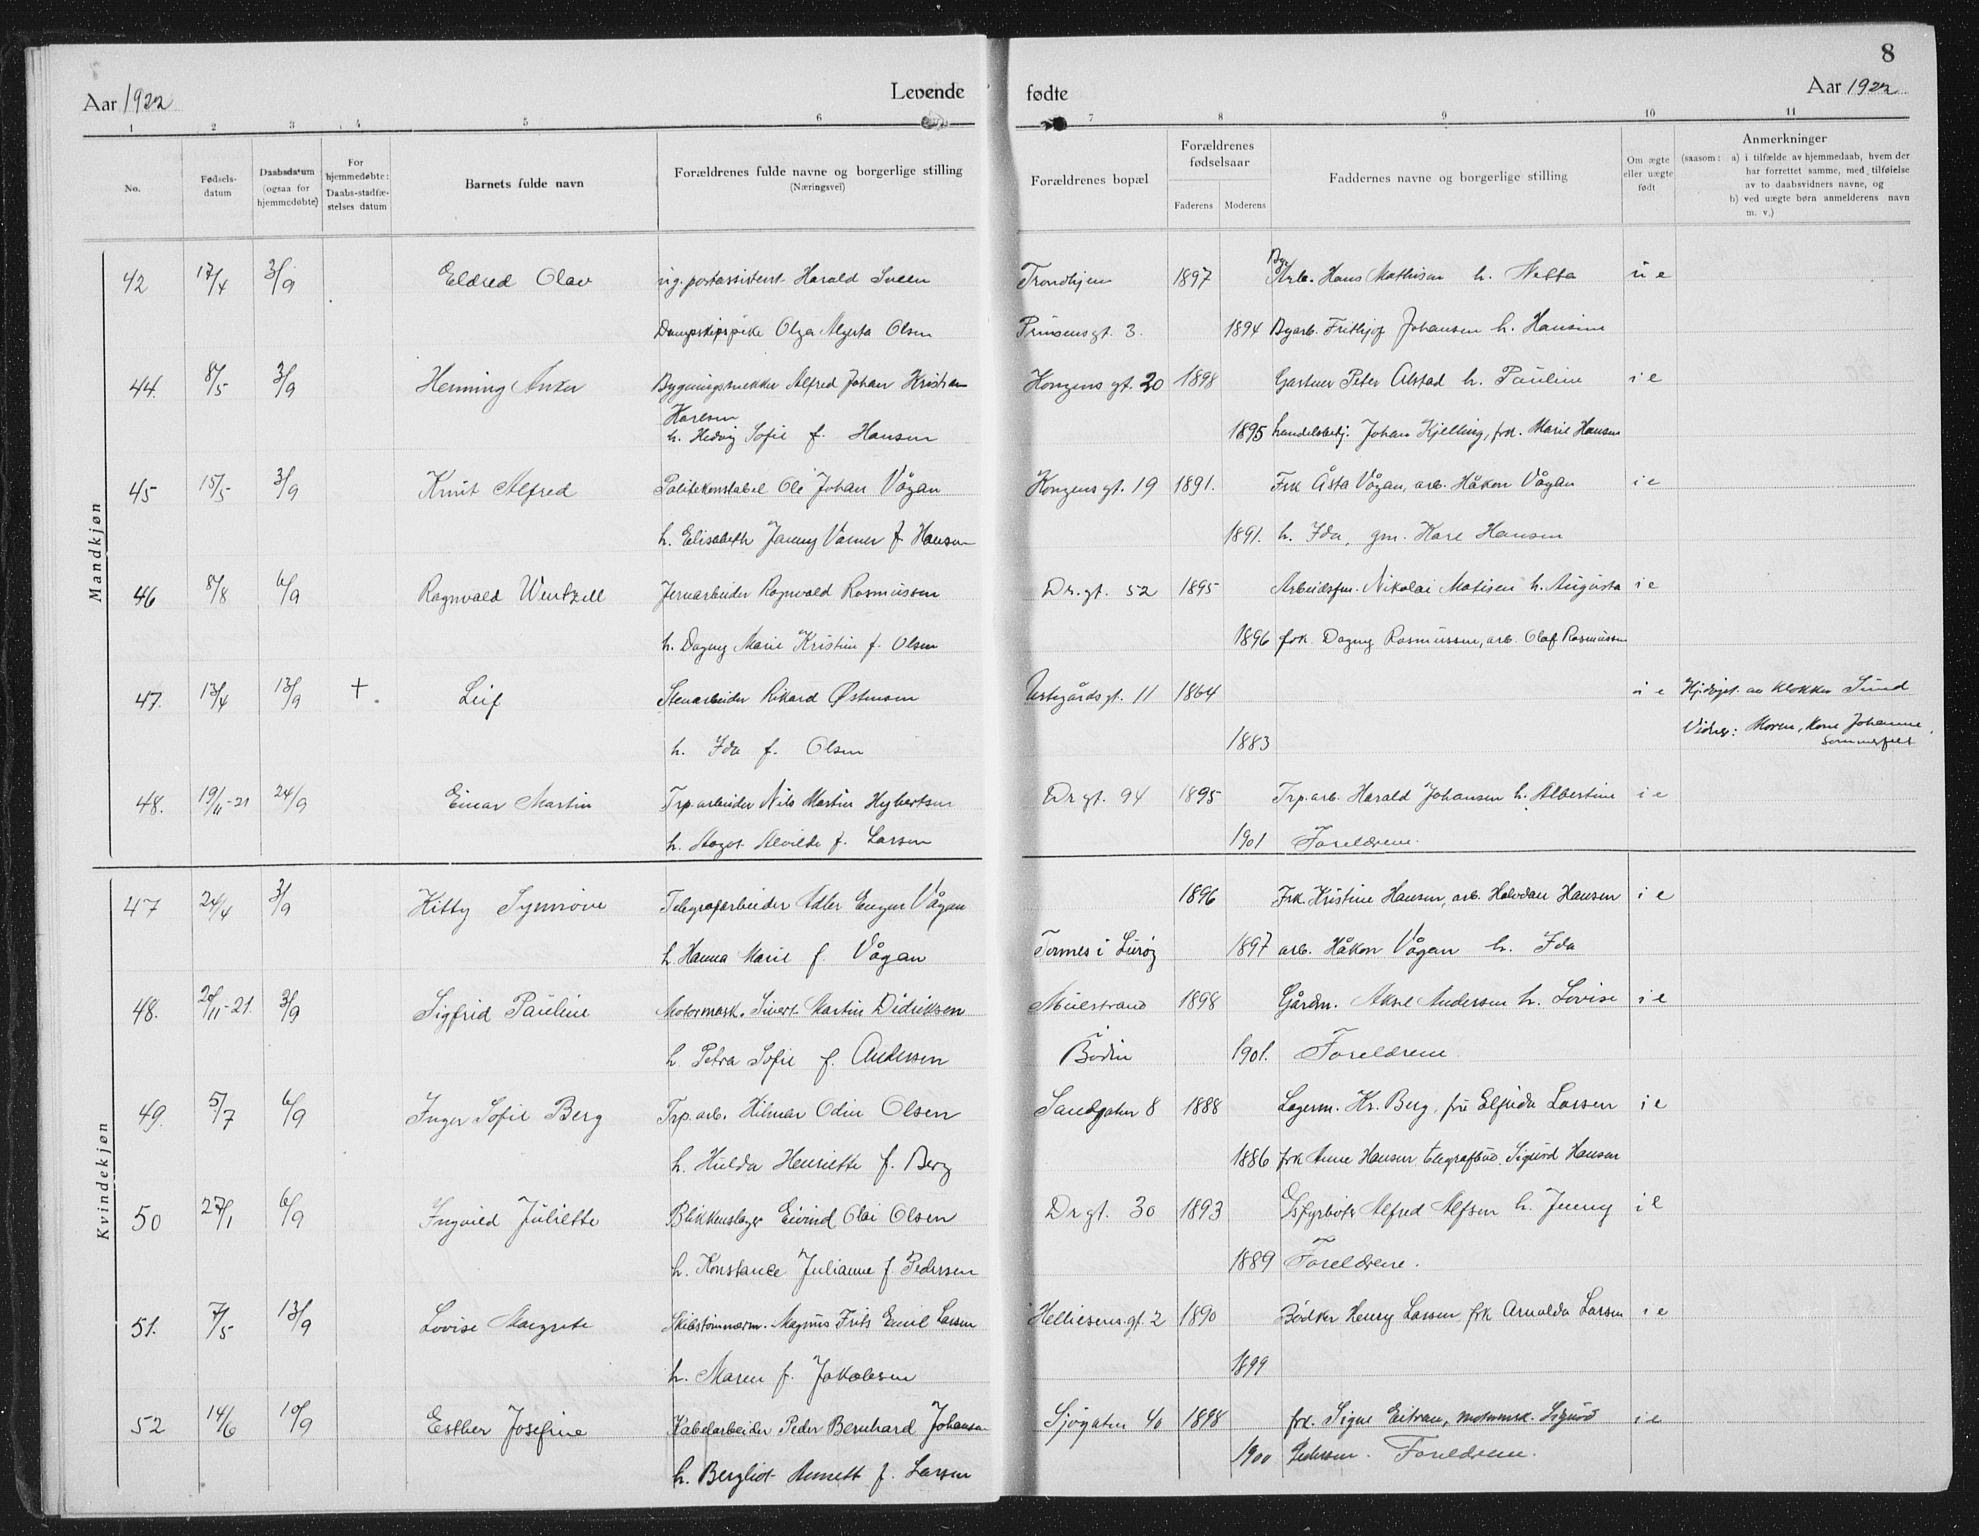 8
Aar 1922 Levende fødte Aar 1922
1 2 3 4 5 6 7 8 9 10 11
No.
Fødsels-
datum
Daabsdatum
(ogsaa for
hjemmedøbte)
For
hjemmedøbte:
Daabs-stadfæ-
stelses datum
Barnets fulde navn
Forældrenes fulde navne og borgerlige stilling
(Næringsvei)
Forældrenes bopæl
Forældrenes
fødselsaar
Faderens Moderens
Faddernes navne og borgerlige stilling
Om ægte
eller uægte
født
Anmerkninger
(saasom: a) i tilfælde av hjemmedaab, hvem der
har forrettet samme, med tilføielse
av to daabsvidners navne, og
b) ved uægte børn anmelderens navn
m. v.)
Mandkjøn
42 17/4 3/9 Eldred Olav ug. postassistent Harald Sveen Trondhjem 1897 Arb. Hans Mathisen h. Netta u e
Olga Olsen Prinsensgt. 3. 1894 Byarb. Frithjof Johansen h. Hansine
44. 8/5 3/9 Henning Anker Bygningssnekker Alfred Johan Kristian Kongensgt. 20 1898 Gartner Peter Alstad h. Pauline i e
Karlsen
h. Hedvig Sofie f. Hansen 1895 handelsbetj. Johan Kjelling, frk. Marie Hansen
45 15/5 3/9 Knut Alfred Politikonstabel Ole Johan Vågan Kongensgt. 19 1891. Frk Åsta Vågan, arb. Håkon Vågan i e
h. Elisabeth Jenny Varner f. Hansen 1891. h. Ida, gm. Kare Hansen
46 8/8 6/9 Ragnvald Wentzell Jernarbeider Ragnvald Rasmussen Dr. gt. 52 1895 Arbeidsfm. Nikolai Matisen h. Augusta i e
h. Dagny Marie Kristine f. Olsen 1896 frk. Dagny Rasmussen, arb. Olaf Rasmussen
47. 13/4 13/9 + Leif Stenarbeider Rikard Østensen 11 1864 i e Hj.døpt. av klokker Sund
h. Ida f. Olsen 1883 Vidner: Moren, kone Johanne
Sommerfelt
48. 19/11-21 24/9 Einar Martin Trp.arbeider Nils Martin Hybertsen Dr gt. 94 1895 Trp.arb. Harald Johansen h. Albertine i e
h. Aagot Alvilde f. Larsen 1901 Foreldrene.
Kvindekjøn
47 24/4 3/9 Kitty Synnøve Telegrafarbeider Adler Vågan 1896 Frk. Kristine Hansen, arb. Halvdan Hansen i e
h Hanna Marie f Vågan Tonnes i Lurøy 1897 arb. Håkon Vågan h. Ida
48. 3/9 Sigfrid Pauline Motormask. Sivert Martin Didriksen Mulstrand 1898 Gårdm. Aksel Andersen h. Lovise i e
h Petra Sofie f. Andersen Bodin 1901. Foreldrene.
49. 5/7 6/9 Inger Sofie Berg Trp.arb. Hilmar Odin Olsen Sandgaten 8 1888 Lagerm. Kr. Berg, fru Elfrida Larsen i e
h. Hulda Henriette f. Berg 1886 frk Anne Hansen telegrafbud. Sigurd Hansen
50 27/1 6/9 Ingvild Juliette Blikkenslager Eivind Olai Olsen Dr gt. 30 1893 Alfred Alfsen h. Jenny i e
h. Konstance Julianne f Pedersen 1889 Foreldrene.
51. 7/5 13/9 Lovise Margrete Skibstømmerm. Magnus Frits Emil Larsen Hellesensgt. 2 1890 Bødker Henry Larsen frk Arnolda Larsen i e
h. Maren f. Jakobsen 1899
52 14/6 10/9 Esther Josefine Kabelarbeider Peder Bernhard Johansen Sjøgaten 40 1898 frk. Signe Eitran, motormsk. Sigurd i e
h. Bergliot Annett f. Larsen 1900 Pedersen. Foreldrene.